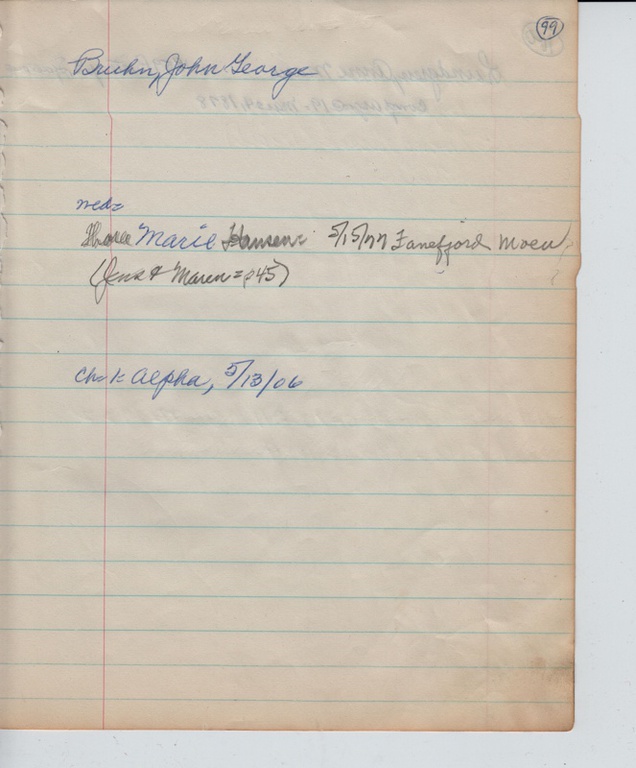 99
Bruhn, John George
med=
Thora Marie Hansen 5/15/77 Fanefjord Moen ?
(Jens & Maren = p45) ?
Ch. 1: Alpha, 5/13/06